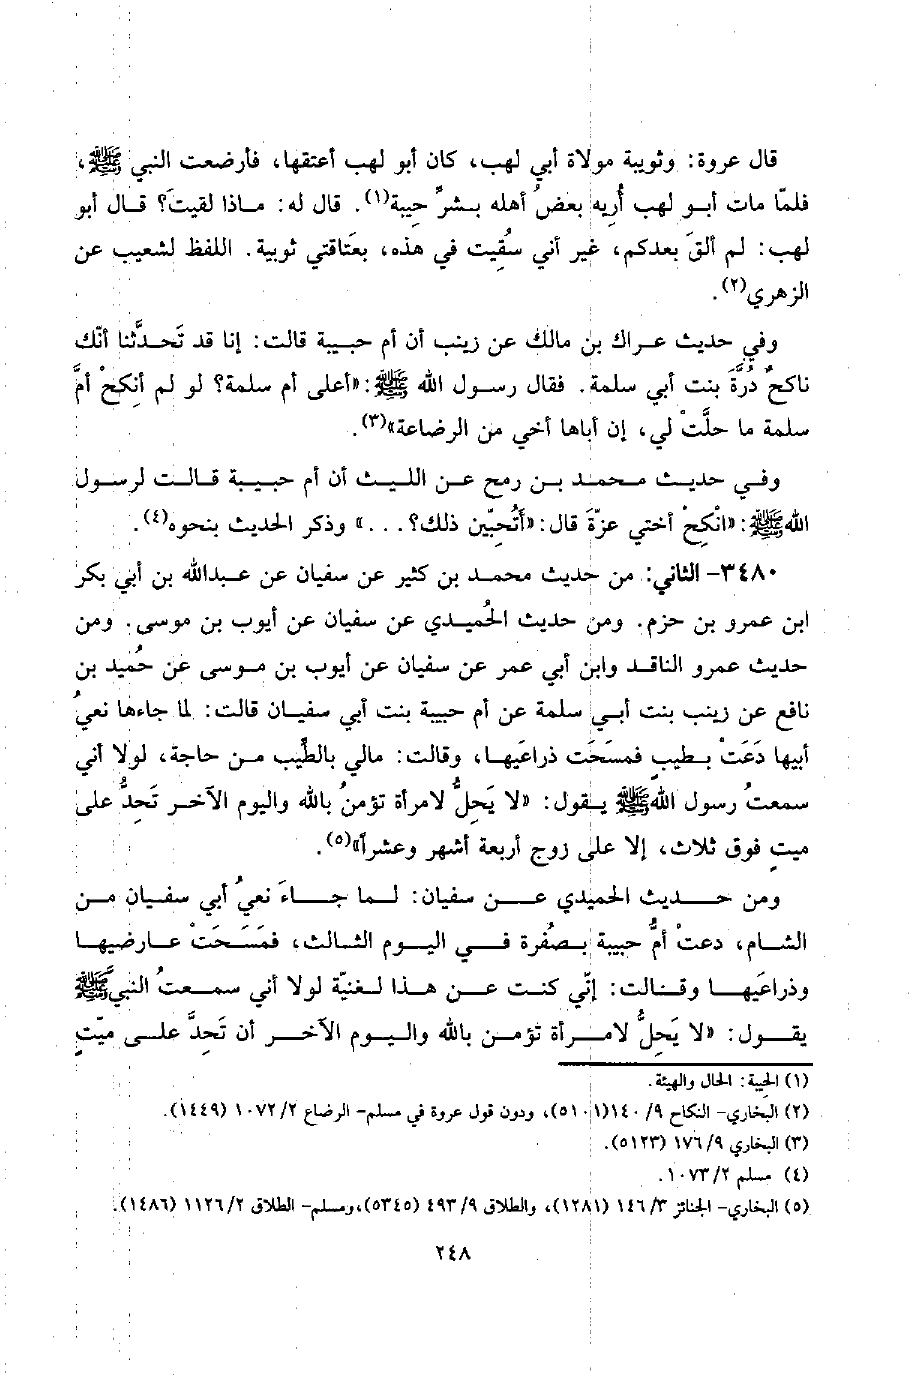 قال عروة: وثويبة مولاة أبي لهب، كان أبو لهب أعتقها، فأرضعت النبي ﷺ،
فلمّا مات أبـو لهب أُريه بعضُ أهله بـشرِّ حِيبة(١). قال له: مـاذا لقيتَ؟ قـال أبو
لهب: لم ألقَ بعدكم، غير أني سُقِيت في هذه، بعَتَاقتي ثويبة. اللفظ لشعيب عن
الزهري(٢).
وفي حديث عـراك بن مالك عن زينب أن أم حبـيبة قالت: إنا قد تَحـدَّثنا أنّك
ناكحٌ دُرَّةَ بنت أبي سلمة. فقال رسـول الله ﷺ: «أعلى أم سلمة؟ لو لم أنكِحْ أمَّ
سلمة ما حلَّتْ لي، إن أباها أخي من الرضاعة»(٣).
وفـي حديـث مـحمـد بـن رمح عـن الليـث أن أم حبـيبـة قـالـت لرسـول
الله ﷺ: «انْكِحْ أختي عزّةَ قال: «أَتُحبّين ذلك؟. . .» وذكر الحديث بنحوه(٤).
٣٤٨٠- الثاني: من حديث محمـد بن كثير عن سفيان عن عبدالله بن أبي بكر
ابن عمرو بن حزم. ومن حديث الحُميـدي عن سفيان عن أيوب بن موسى. ومن
حديث عمرو الناقـد وابن أبي عمر عن سفيان عن أيوب بن مـوسى عن حُميد بن
نافع عن زينب بنت أبـي سلمة عن أم حبيبة بنت أبي سفيـان قالت: لما جاءها نعيُ
أبيها دَعَتْ بـطيبٍ فمسَحَت ذراعَيهـا، وقالت: مالي بالطِّيب مـن حاجة، لولا أني
سمعتُ رسول الله ﷺ يـقول: «لا يَحِلُّ لامرأة تؤمنُ بالله واليوم الآخـر تَحِدُّ على
ميتٍ فوق ثلاث، إلا على زوج أربعة أشهر وعشراً»(٥).
ومن حـــديـث الحميدي عــن سفيان: لـمـا جــاءَ نعيُ أبي سفيـان مـن
الشـام، دعتْ أمُّ حبيبة بـصُفرة فــي اليـوم الثـالـث، فمَسَـحَتْ عـارضيهـا
وذراعَيهـا وقـالت: إنّي كنـت عـن هـذا لـغنيّة لولا أني سمـعتُ النبيَّ ﷺ
يقـول: «لا يَحِلُّ لامـرأة تؤمـن بالله واليـوم الآخـر أن تَحِدَّ علـى ميّتٍ
(١) الحِيبة: الحال والهيئة.
(٢) البخاري- النكاح ٩/ ١٤٠(٥١٠١)، ودون قول عروة في مسلم- الرضاع ٢/ ١٠٧٢ (١٤٤٩).
(٣) البخاري ٩/ ١٧٦ (٥١٢٣).
(٤) مسلم ٢/ ١٠٧٣.
(٥) البخاري- الجنائز ٣/ ١٤٦ (١٢٨١)، والطلاق ٩/ ٤٩٣ (٥٣٤٥)،ومسلم- الطلاق ٢/ ١١٢٦ (١٤٨٦).
٢٤٨